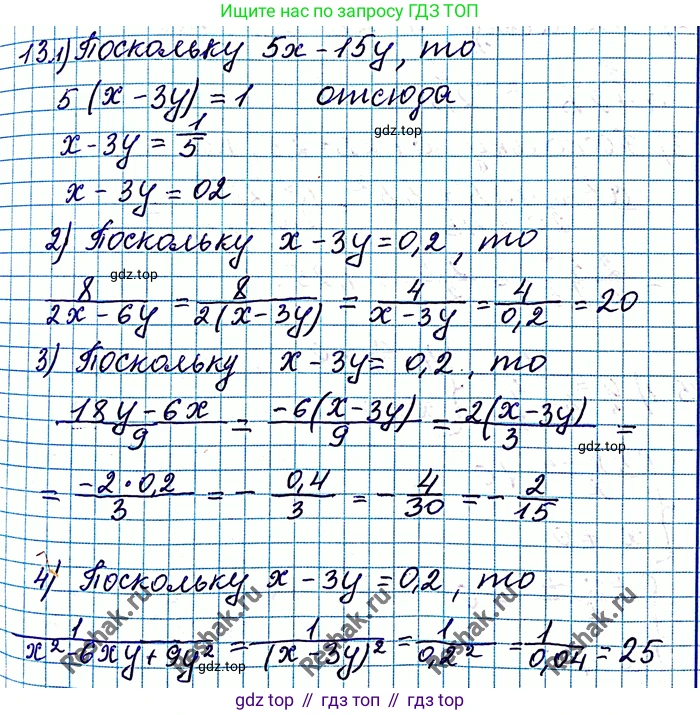 Ищите нас по запросу ГДЗ ТОП
13.1) Поскольку 5x - 15y, то
5(x - 3y) = 1 отсюда
gdz.top
x - 3y = 1/5
x - 3y = 02
2) Поскольку x - 3y = 0,2, то
gdz.top
8/(2x - 6y) = 8/(2(x - 3y)) = 4/(x - 3y) = 4/0,2 = 20
3) Поскольку x - 3y = 0,2, то
(18y - 6x)/9 = (-6(x - 3y))/9 = (-2(x - 3y))/3 =
gdz.top
= (-2·0,2)/3 = - 0,4/3 = - 4/30 = - 2/15
4) Поскольку x - 3y = 0,2, то
1/(x² - 6xy + 9y²) = 1/(x - 3y)² = 1/0,2² = 1/0,04 = 25
Reshak.ru Reshak.ru Reshak.ru Reshak.ru Reshak.ru
gdz.top
gdz top // gdz top // gdz.top